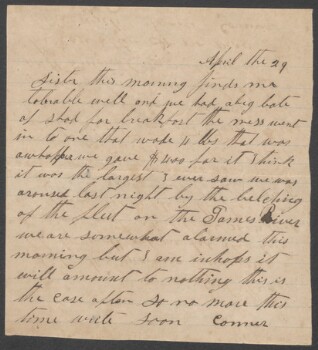 April the 29
Sister this morning finds me
tolerable well and we had a big bate
of shad for breakfast the mess went
in to one that wade 11 lbs that was
a whopper we gave $4 00 for it I think
it was the largest I ever saw we was
aroused last night by the belching
of the fleet on the James River
we are somewhat alarmed this
morning but I am in hops it
will amount to nothing this is
the case often So no more this
time write soon Conner